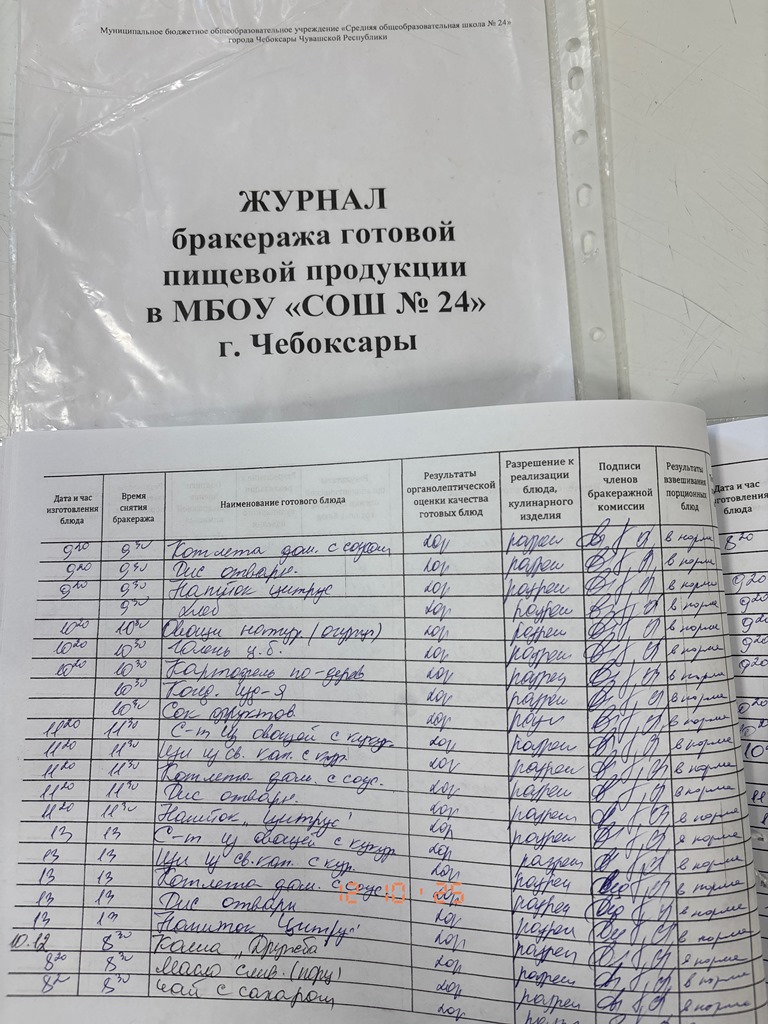 Муниципальное бюджетное общеобразовательное учреждение «Средняя общеобразовательная школа № 24»
города Чебоксары Чувашской Республики
ЖУРНАЛ
бракеража готовой
пищевой продукции
в МБОУ «СОШ № 24»
г. Чебоксары
Дата и час изготовления блюда
Время снятия бракеража
Наименование готового блюда
Результаты органолептической оценки качества готовых блюд
Разрешение к реализации блюда, кулинарного изделия
Подписи членов бракеражной комиссии
Результаты взвешивания порционных блюд
9 20 9 30 Котлета дом. с соусом хор разреш в норме
9 20 9 30 Рис отварн. хор разреш в норме
9 20 9 30 Напиток цитрус хор разреш в норме
9 30 хлеб хор разреш в норме
10 20 10 30 Овощи натур. (огурцы) хор разреш в норме
10 20 10 30 Голень ц.б. хор разреш в норме
10 20 10 30 Картофель по-дерев хор разреш в норме
10 30 Конд. изд-я хор разреш в норме
10 30 Сок фруктов. хор разреш в норме
11 20 11 30 С-т из овощей с кукур. хор разреш в норме
11 20 11 30 Щи из св. кап. с кур. хор разреш в норме
11 20 11 30 Котлета дом. с соус. хор разреш в норме
11 20 11 30 Рис отварн. хор разреш в норме
11 20 11 30 Напиток „Цитрус" хор разреш в норме
13 13 С-т из овощей с кукур хор разреш в норме
13 13 Щи из св.кап. с кур. хор разреш в норме
13 13 Котлета дом. с соус. хор разреш в норме
13 13 Рис отварн хор разреш в норме
13 13 Напиток „Цитрус" хор разреш в норме
10.12 8 30 Каша „Дружба" хор разреш в норме
8 20 8 30 Масло слив. (порц) хор разреш в норме
8 20 8 30 Чай с сахаром хор разреш в норме
12 10 '25